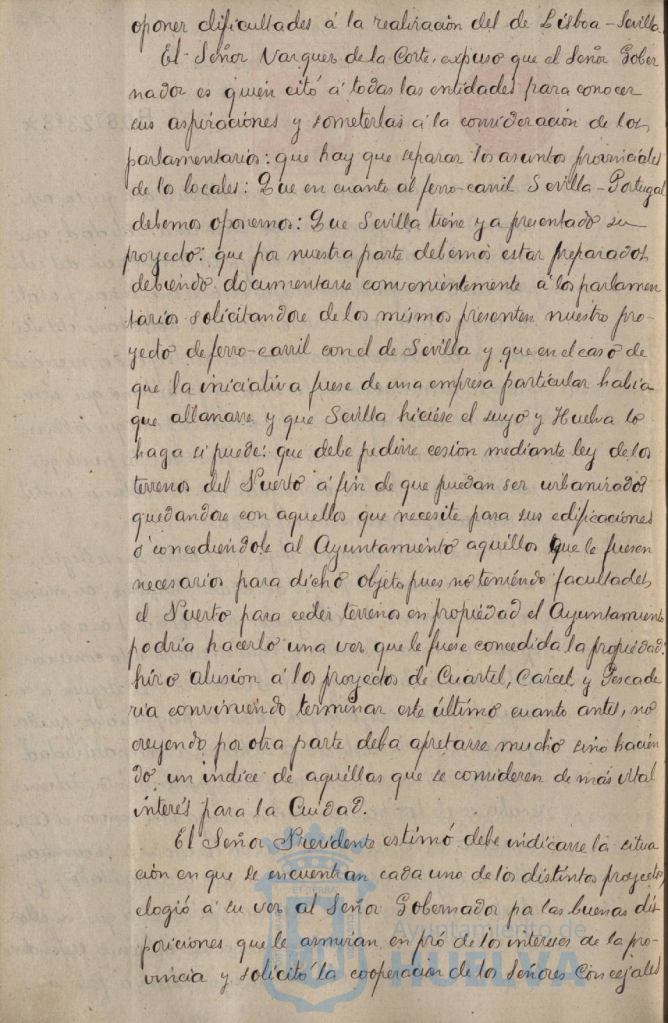 oponer dificultades á la realizacion del de Lisboa-Sevilla.
El Señor Vazquez de la Corte, expuso que el Señor Gober
nador es quien citó á todas las entidades para conocer
sus aspiraciones y someterlas á la consideracion de los
parlamentarios: que hay que separar los asuntos provinciales
de los locales: Que en cuanto al ferro-carril Sevilla-Portugal
debemos oponernos: Que Sevilla tiene ya presentado su
proyecto: que por nuestra parte debemos estar preparados
debiendo documentarse convenientemente á los parlamen
tarios solicitandose de los mismos presenten nuestro pro-
yecto de ferro-carril con el de Sevilla y que en el caso de
que la iniciativa fuese de una empresa particular habia
que allanarse y que Sevilla hiciese el suyo y Huelva lo
haga si puede: que debe pedirse cesion mediante ley de los
terrenos del Puerto á fin de que puedan ser urbanizados
quedandose con aquellos que necesite para sus edificaciones
ó concediéndole al Ayuntamiento aquéllos que le fuesen
necesarios para dicho objeto pues no teniendo facultades
el Puerto para ceder terrenos en propiedad el Ayuntamiento
podria hacerlo una vez que le fuese concedida la propiedad:
hizo alusion á los proyectos de Cuartel, Carcel y Pescade
ria conviniendo terminar este último cuanto antes, no
creyendo por otra parte deba apretarse mucho sino hacien
do un indice de aquéllas que se consideren de más vital
interés para la Ciudad.
El Señor Presidente estimó debe indicarse la situa
ción en que se encuentran cada uno de los distintos proyectos
elogió á su vez al Señor Gobernador pa las buenas dis
posiciones que le animan, en pró de los intereses de la pro-
vincia y solicitó la cooperacion de los Señores Concejales
Ayuntamiento de
HUELVA